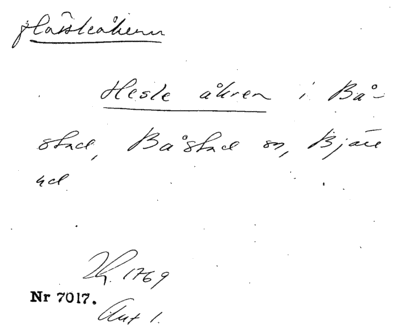 Hässleåkern
Hesle åkren i Bå-
stad, Båstad sn, Bjäre
hd
1769
Nr 7017.
Akt 1.